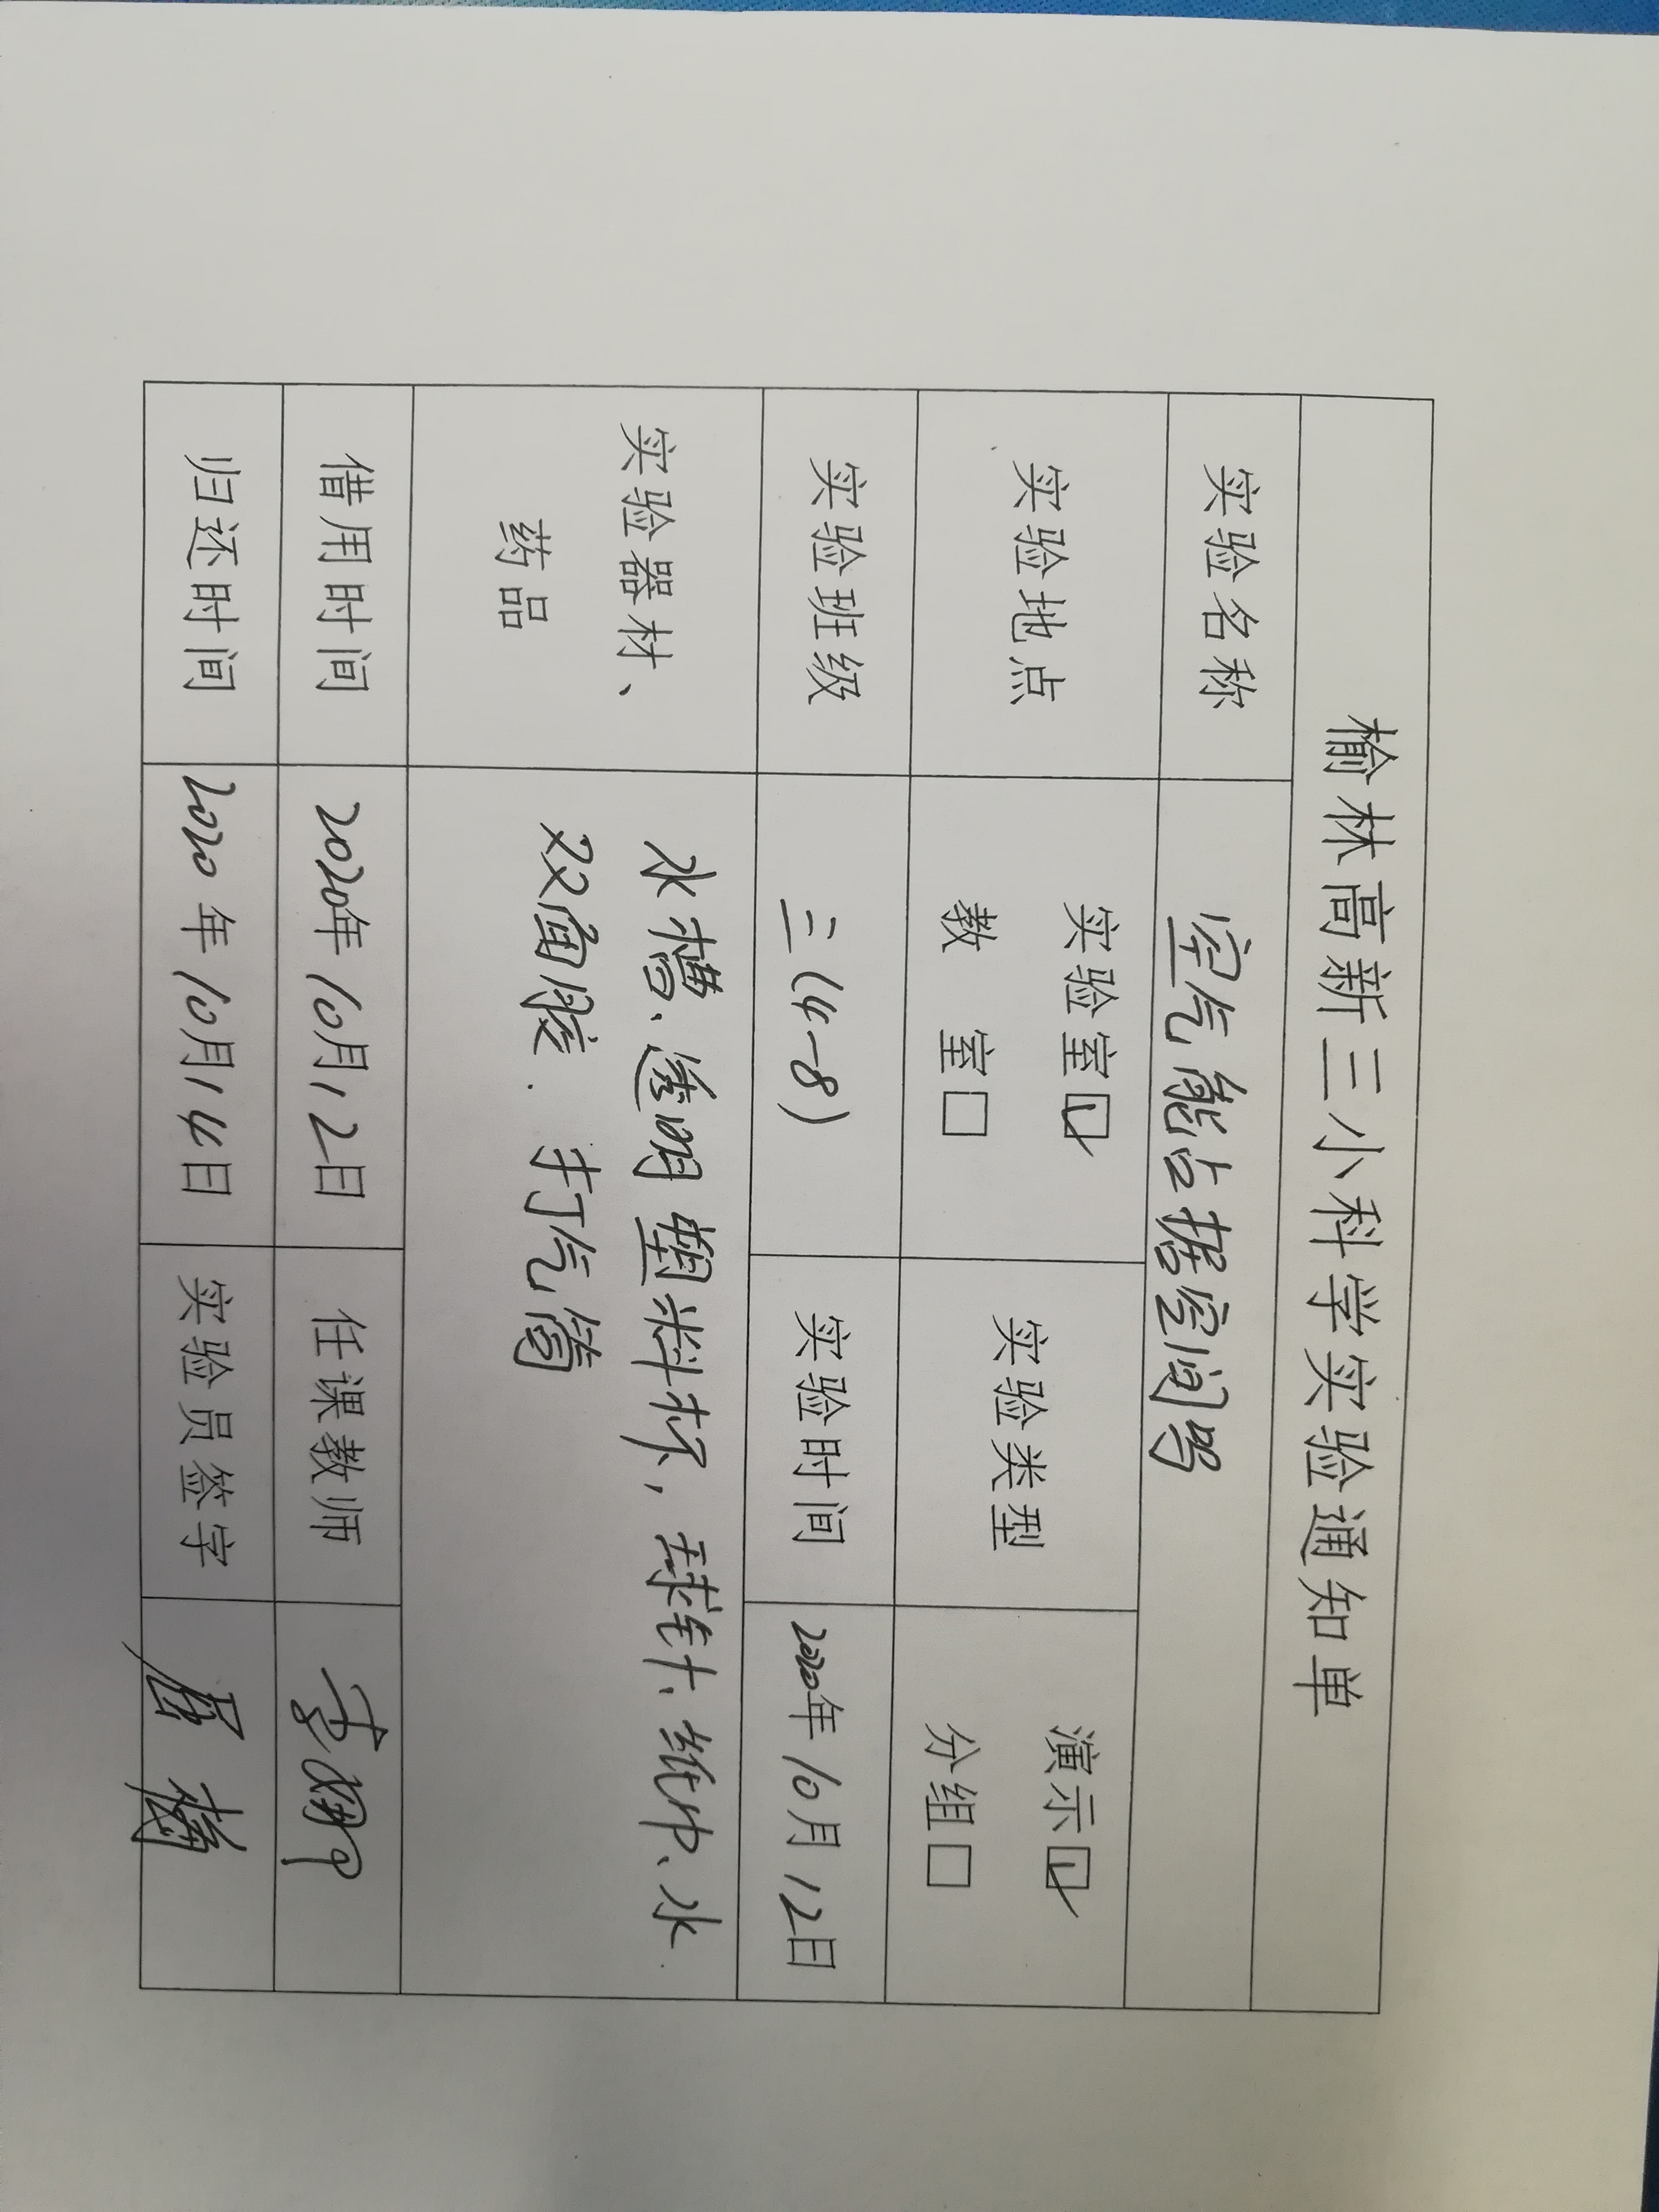 榆林高新三小科学实验通知单
实验名称 空气能占据空间吗
实验地点 实验室☑ 教 室□ 实验类型 演示☑ 分组□
实验班级 三(4-8) 实验时间 2020年10月12日
实验器材、药品 水槽、透明塑料杯,球针、纸巾、水
双面胶、打气筒
借用时间 2020年10月12日 任课教师
归还时间 2020年10月14日 实验员签字